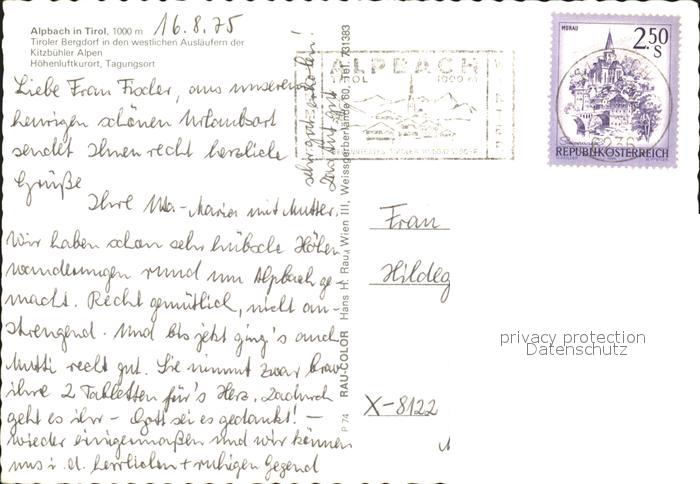 Alpbach in Tirol, 1000 m 16.8.75
Tiroler Bergdorf in den westlichen Ausläufern der
Kitzbühler Alpen
Höhenluftkurort, Tagungsort
Liebe Frau Fischer, aus unserem
heurigen schönen Urlaubsort
sendet Ihnen recht herzliche
Grüße
Ihre Ida-Maria mit Mutter.
Wir haben schon sehr hübsche Höhen-
wanderungen rund um Alpbach ge-
macht. Recht gemütlich, nicht an-
strengend. Und bis jetzt ging's auch
Mutti recht gut. Sie nimmt zwar brav
ihre 2 Tabletten für's Herz. Dadurch
geht es ihr - Gott sei es gedankt! -
wieder einigermaßen und wir können
uns i. d. herrlichen + ruhigen Gegend
sehr gut erholen!
Das tut gut
P 74 RAU-COLOR Hans H. Rau, Wien III, Weissgerberlände 60, Tel. 731383
ALPBACH
TIROL 1000 m
MURAU
2.50
S
6236
REPUBLIK ÖSTERREICH
Frau
Hildeg
X-8122
privacy protection
Datenschutz